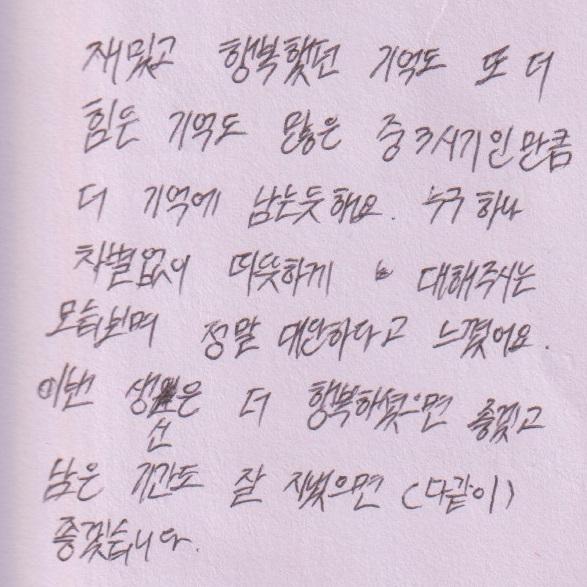 재밌고 행복했던 기억도 또 더
힘든 기억도 많은 중3시기인만큼
더 기억에 남는듯해요. 누구 하나
차별없이 따뜻하게 대해주시는
모습보며 정말 대단하다고 느꼈어요.
이번 생신은 더 행복하셨으면 좋겠고
남은 기간도 잘 지냈으면 (다같이)
좋겠습니다.